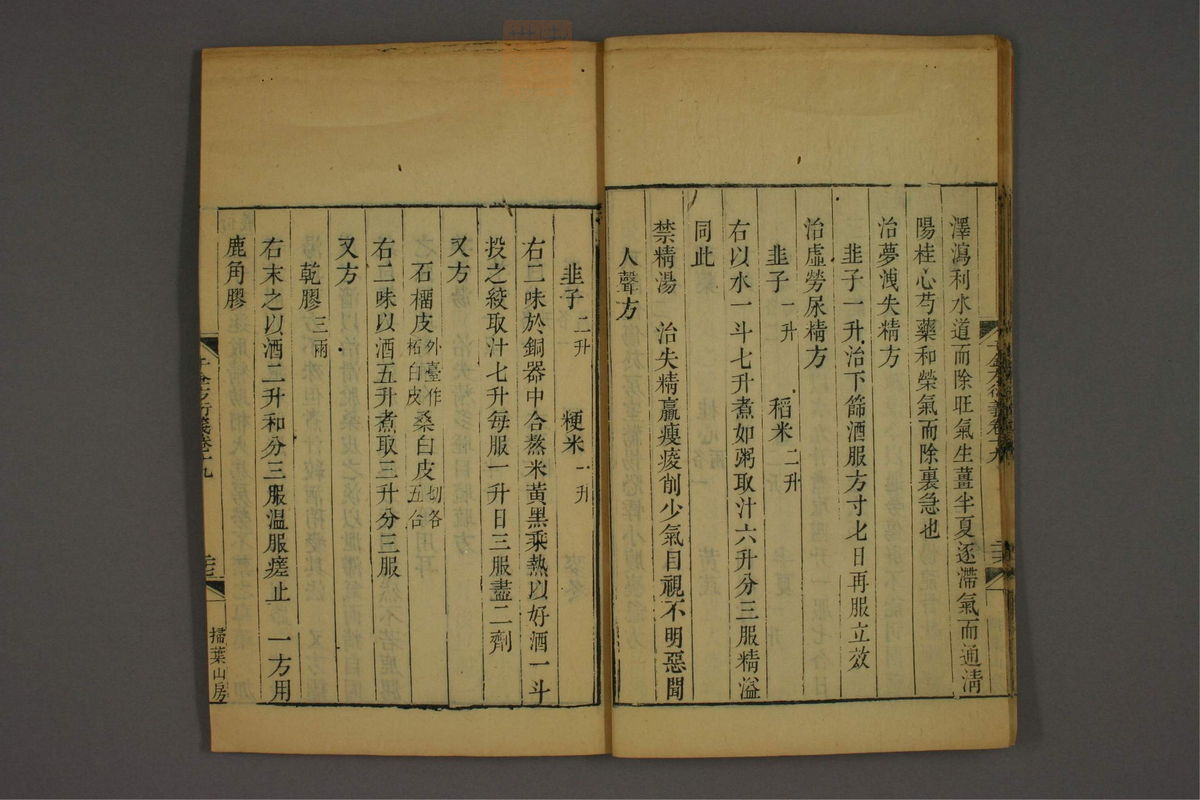 澤瀉利水道而除旺氣生薑半夏逐滯氣而通淸
陽桂心芍藥和榮氣而除裏急也
治夢洩失精方
韭子一升治下篩酒服方寸匕日再服立效
治虛勞尿精方
韭子 二升 稻米 三升
右以水一斗七升煮如粥取汁六升分三服精溢
同此
禁精湯 治失精羸瘦痠削少氣目視不明惡聞
人聲方
韭子 二升 粳米 一升
右二味於銅器中合熬米黃黑乘熱以好酒一斗
投之絞取汁七升每服一升日三服盡二劑
又方
石榴皮 外臺作柘白皮 桑白皮 切各五合
右二味以酒五升煮取三升分三服
又方
乾膠 三兩
右末之以酒二升和分三服溫服瘥止 一方用
鹿角膠
千金方衍義卷十九
掃葉山房